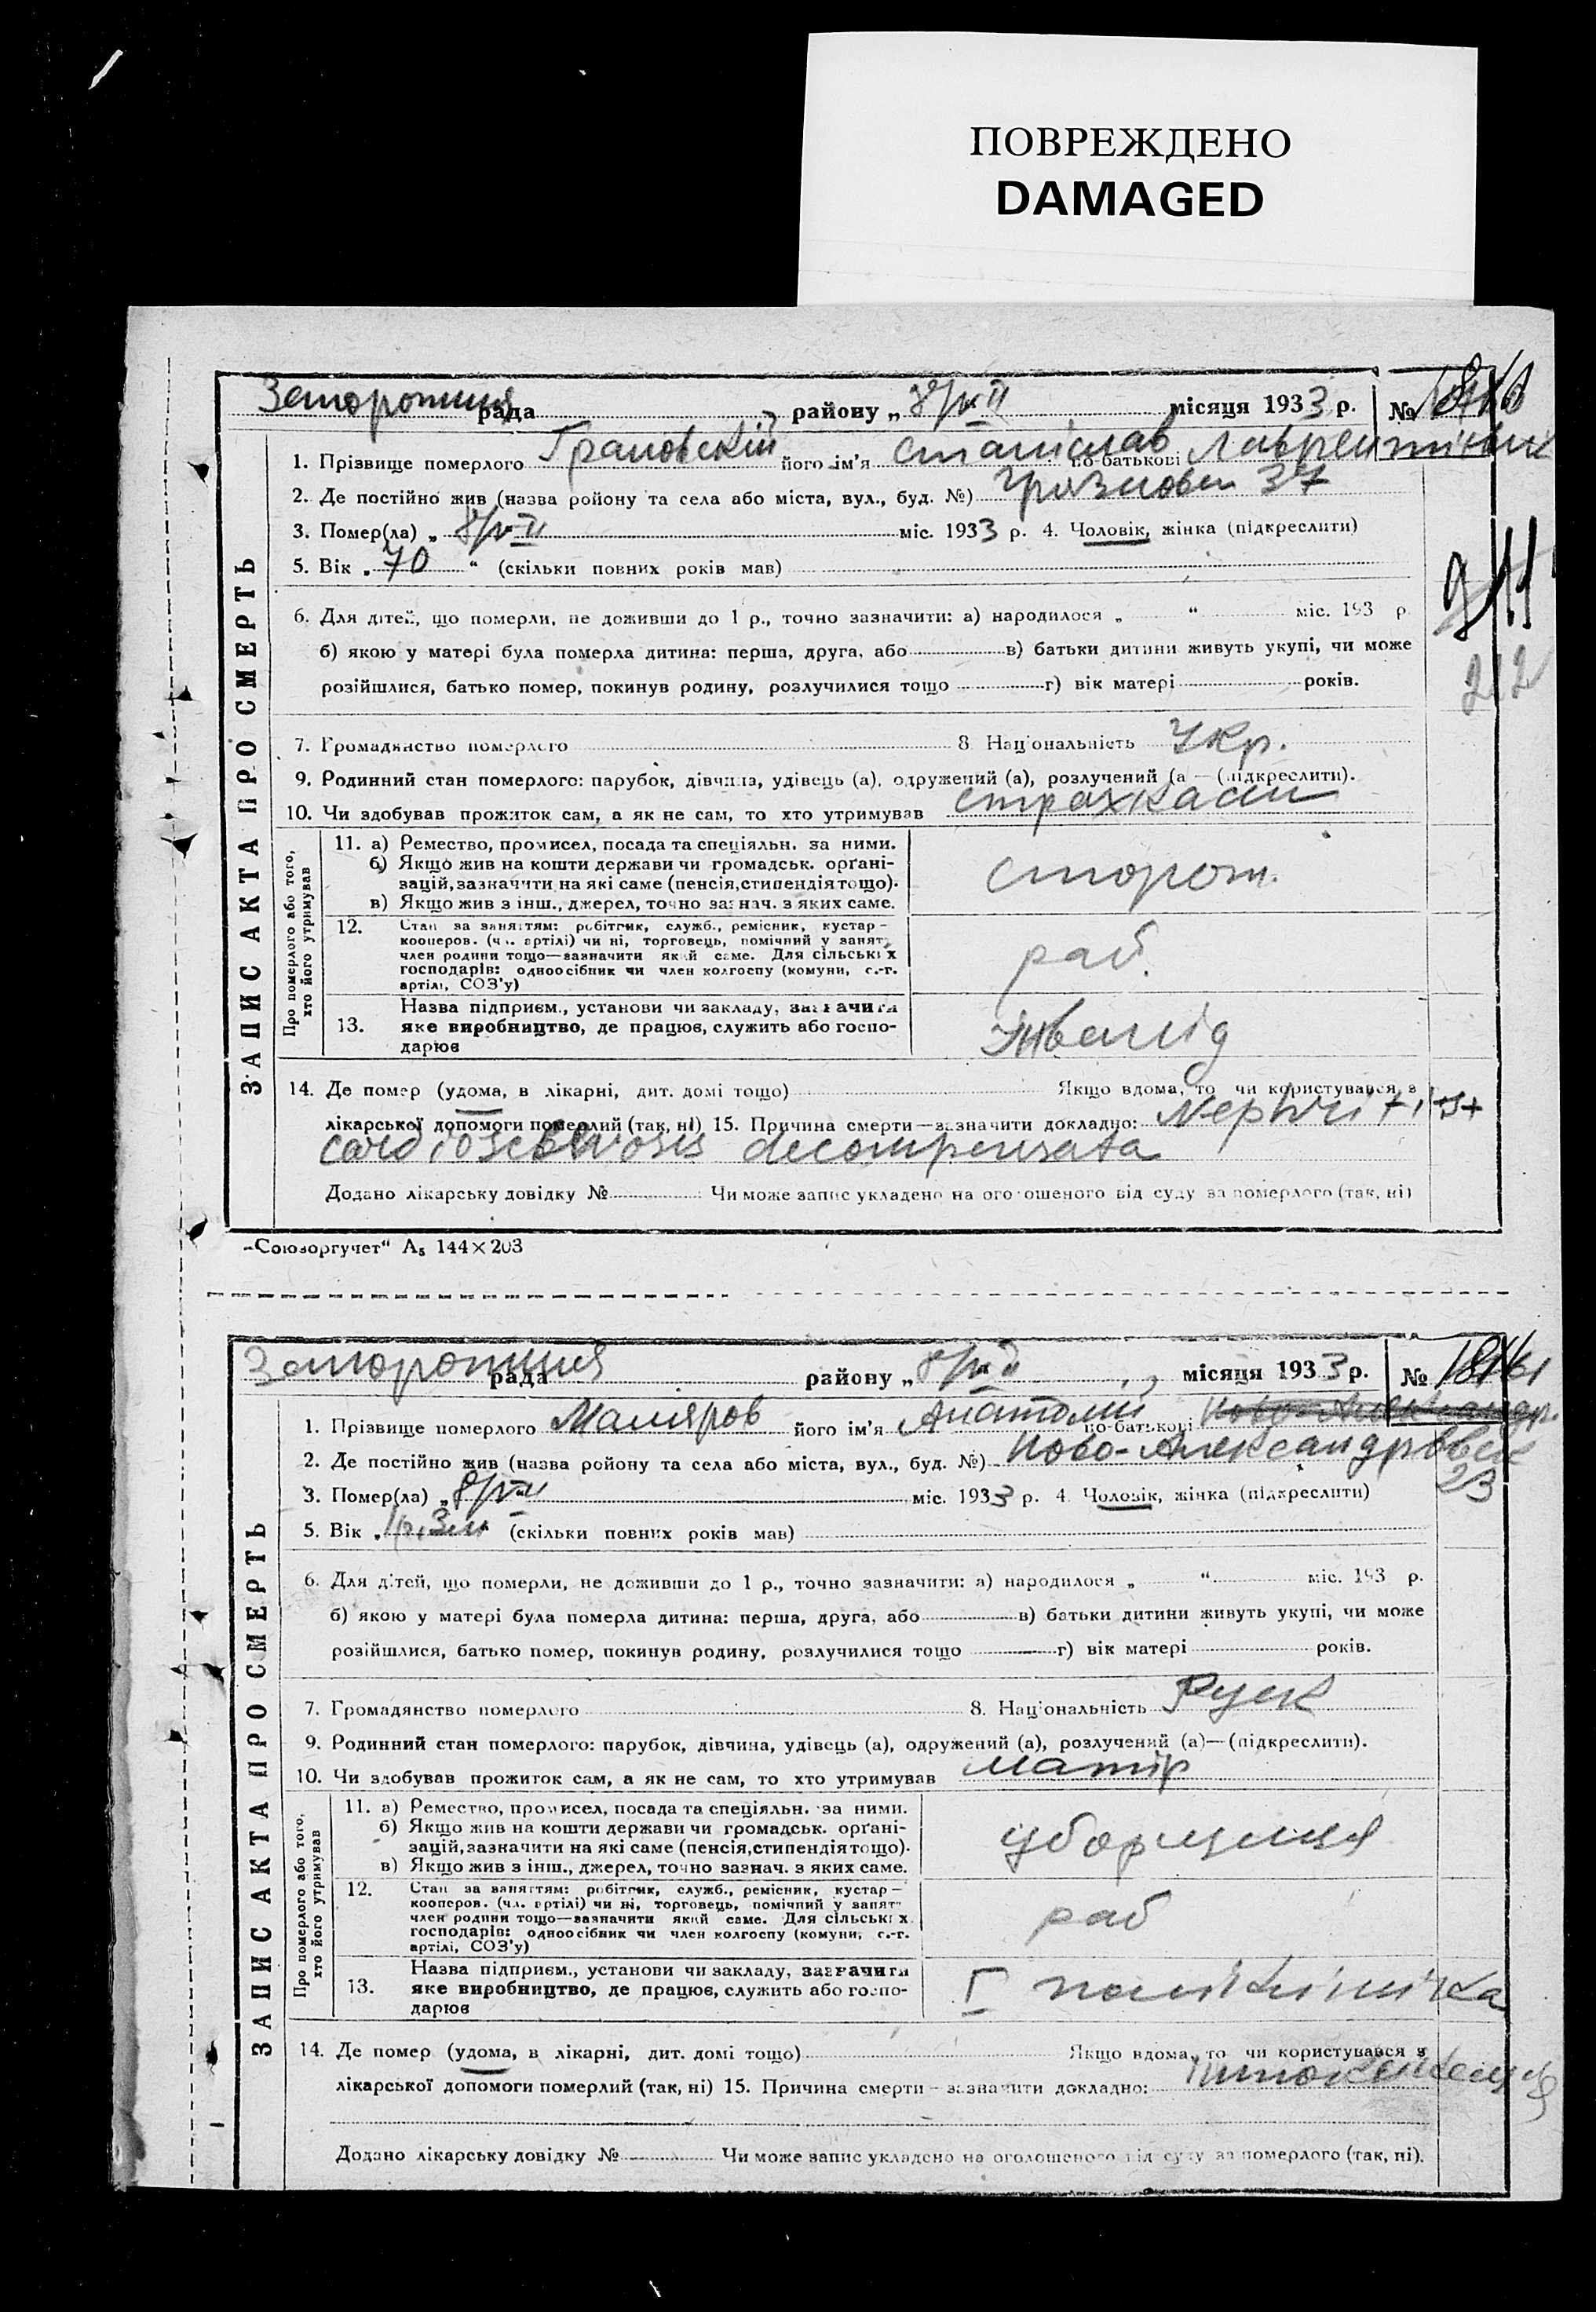 ПОВРЕЖДЕНО
DAMAGED
рада району „ місяця 1933 р. №
1. Прізвище померлого Грановский його ім’я Станіслав по-батькові
2. Де постійно жив (назва ройону та села або міста, вул., буд. №) 37
3. Помер(ла) „ 8/VII міс. 1933 р. 4. Чоловік, жінка (підкреслити)
5. Вік „ 70 “ (скільки повних років мав)
6. Для дітей, що померли, не доживши до 1 р., точно зазначити: а) народилося „ “ міс. 193 р.
б) якою у матері була померла дитина: перша, друга, або в) батьки дитини живуть укупі, чи може
212
розійшлися, батько помер, покинув родину, розлучилися тощо г) вік матері років.
7. Громадянство померлого 8 Національність Укр.
9. Родинний стан померлого: парубок, дівчина, удівець (а), одружений (а), розлучений (а — (підкреслити).
10. Чи здобував прожиток сам, а як не сам, то хто утримував страхкаси
ЗАПИС АКТА ПРО СМЕРТЬ
Про померлого або того, хто його утримував
11. а) Ремество, промисел, посада та спеціяльн. за ними.
б) Якщо жив на кошти держави чи громадськ. орґані-
зацій, зазначити на які саме (пенсія, стипендія тощо).
в) Якщо жив з інш., джерел, точно зазнач. з яких саме.
сторож.
12. Стан за заняттям: робітник, служб., ремісник, кустар—
кооперов. (чл. артілі) чи ні, торговець, помічний у занят.
член родини тощо—зазначити який саме. Для сільських
господарів: одноосібник чи член колгоспу (комуни, с.-г.
артілі, СОЗ’у)
раб.
13. Назва підприєм., установи чи закладу, зазначити
яке виробництво, де працює, служить або госпо-
дарює
Інвалід
14. Де помер (удома, в лікарні, дит. домі тощо) Якщо вдома, то чи користувався з
лікарської допомоги померлий (так, ні) 15. Причина смерти—зазначити докладно: Nephritis +
cardiosclerosis decompensata
Додано лікарську довідку № Чи може запис укладено на оголошеного від суду за померлого (так, ні)
„Союзоргучет“ А₅ 144×203
рада району „ місяця 1933 р. №
1. Прізвище померлого Маляров його ім’я Анатолий по-батькові
2. Де постійно жив (назва ройону та села або міста, вул., буд. №) Ново-Александровск
23
3. Помер(ла) „ 8/VII міс. 1933 р. 4. Чоловік, жінка (підкреслити)
5. Вік „ 1р. 3м “ (скільки повних років мав)
6. Для дітей, що померли, не доживши до 1 р., точно зазначити: а) народилося „ “ міс. 193 р.
б) якою у матері була померла дитина: перша, друга, або в) батьки дитини живуть укупі, чи може
розійшлися, батько помер, покинув родину, розлучилися тощо г) вік матері років.
7. Громадянство померлого 8. Національність Руск
9. Родинний стан померлого: парубок, дівчина, удівець (а), одружений (а), розлучений (а)—(підкреслити).
10. Чи здобував прожиток сам, а як не сам, то хто утримував матір
ЗАПИС АКТА ПРО СМЕРТЬ
Про померлого або того, хто його утримував
11. а) Ремество, промисел, посада та спеціяльн. за ними.
б) Якщо жив на кошти держави чи громадськ. орґані-
зацій, зазначити на які саме (пенсія, стипендія тощо).
в) Якщо жив з інш., джерел, точно зазнач. з яких саме.
уборщиця
12. Стан за заняттям: робітник, служб., ремісник, кустар—
кооперов. (чл. артілі) чи ні, торговець, помічний у занят.
член родини тощо—зазначити який саме. Для сільських
господарів: одноосібник чи член колгоспу (комуни, с.-г.
артілі, СОЗ’у)
раб
13. Назва підприєм., установи чи закладу, зазначити
яке виробництво, де працює, служить або госпо-
дарює
I поліклінічка
14. Де помер (удома, в лікарні, дит. домі тощо) Якщо вдома, то чи користувався з
лікарської допомоги померлий (так, ні) 15. Причина смерти—зазначити докладно:
Додано лікарську довідку № Чи може запис укладено на оголошеного від суду за померлого (так, ні).